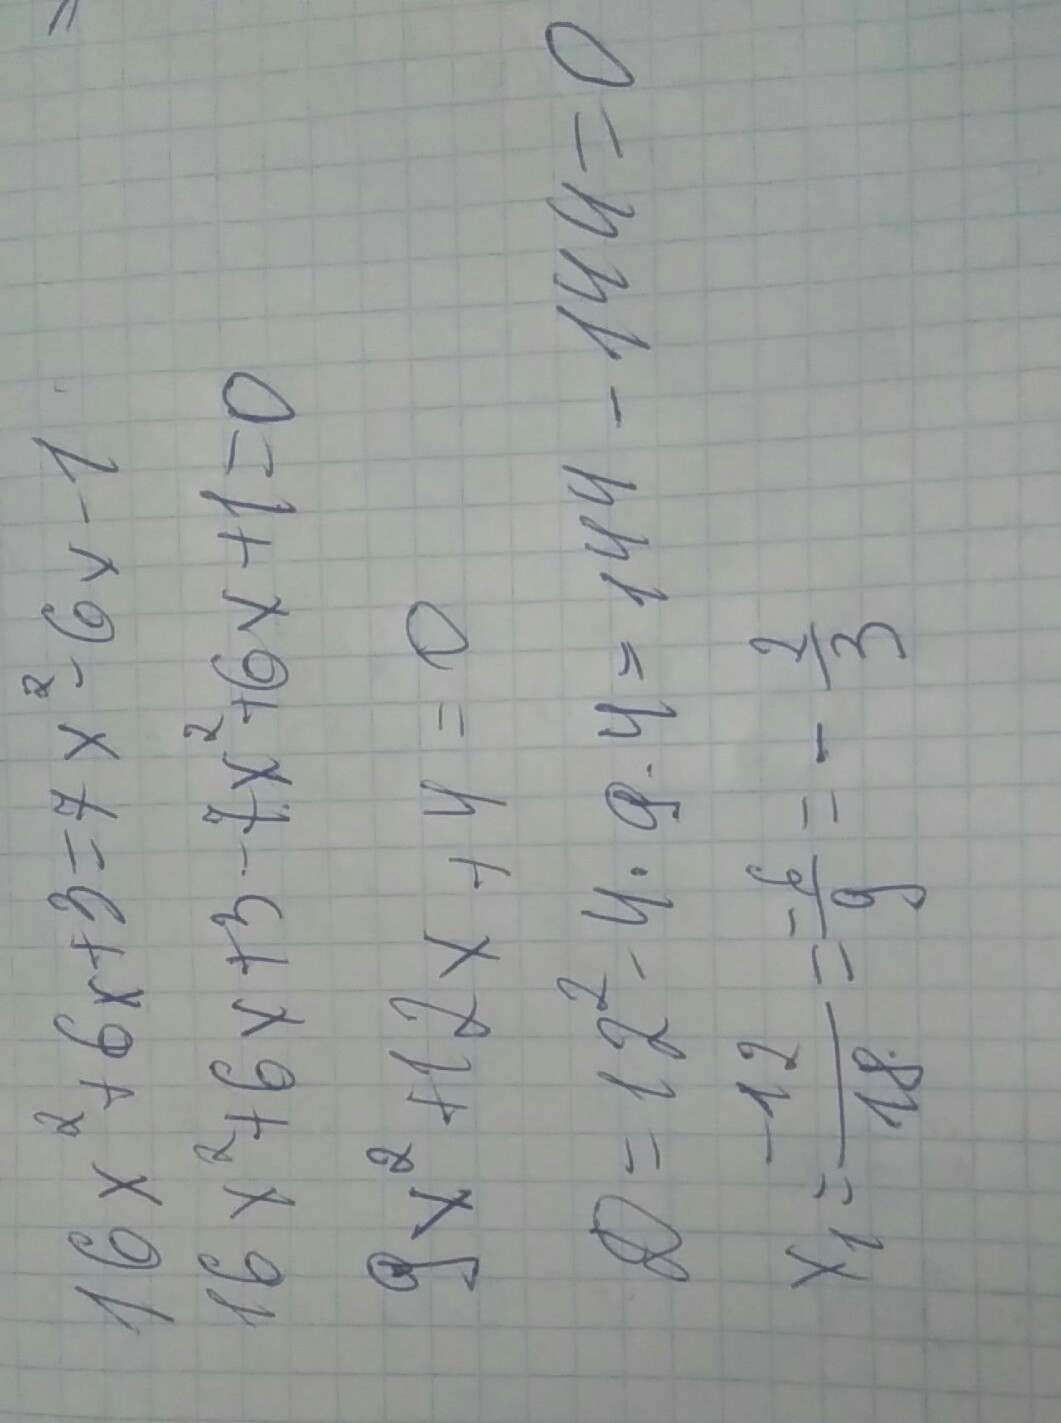 16x²+6x+3=7x²-6x-1
16x²+6x+3-7x²+6x+1=0
9x²+12x+4=0
D=12²-4·9·4=144-144=0
x₁=-12/18=-6/9=-2/3